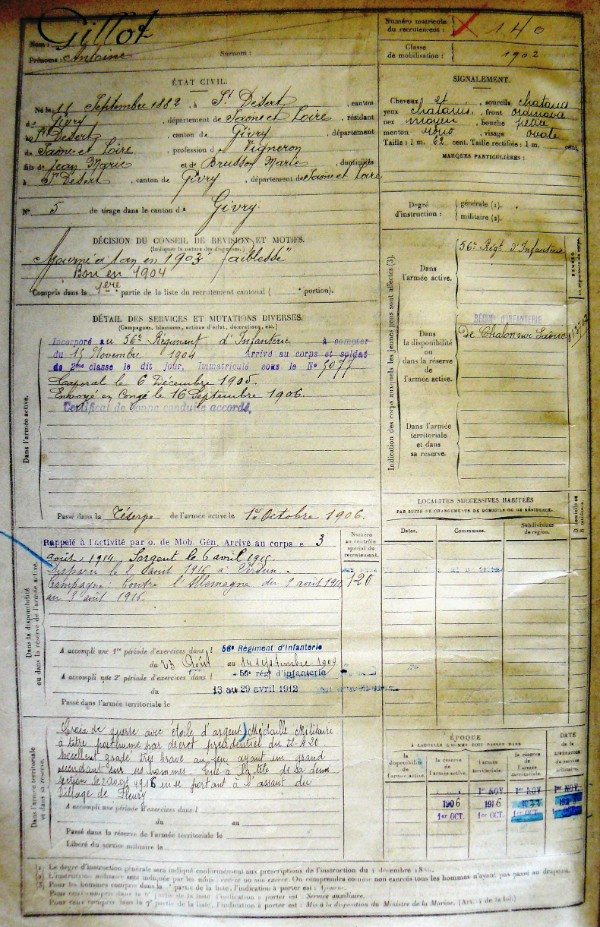 Nom : Gillot
Prénoms : Antoine Surnom :
Numéro matricule du recrutement : 140
Classe de mobilisation : 1902
ÉTAT CIVIL.
Né le 11 Septembre 1882, à St Désert, canton
de Givry, département de Saône et Loire, résidant
à St Désert, canton de Givry, département
de Saône et Loire, profession de Vigneron
fils de Jean Marie et de Brusson Marie, domiciliés
à St Désert, canton de Givry, département de Saône et Loire
N° 5 de tirage dans le canton de Givry.
SIGNALEMENT.
Cheveux et sourcils chatains
yeux chatains, front ordinaire
nez moyen, bouche
menton rond, visage ovale
Taille : 1 m. 62 cent. Taille rectifiée : 1 m.
MARQUES PARTICULIÈRES :
Degré d'instruction : générale (1).
militaire (2).
DÉCISION DU CONSEIL DE REVISION ET MOTIFS.
Ajourné à 1 an en 1903 faiblesse
Bon en 1904
Compris dans la 1ère partie de la liste du recrutement cantonal ( portion).
DÉTAIL DES SERVICES ET MUTATIONS DIVERSES.
(Campagnes, blessures, actions d'éclat, décorations, etc.)
Dans l'armée active.
Incorporé au 56e Régiment d'Infanterie à compter
du 15 Novembre 1904 Arrivé au corps et soldat
de 2ème classe le dit jour, immatriculé sous le N° 5077
Caporal le 6 Décembre 1905.
Envoyé en Congé le 16 Septembre 1906.
Certificat de bonne conduite accordé.
Passé dans la Réserve de l'armée active le 1er Octobre 1906.
Indication des corps auxquels les jeunes gens sont affectés (3).
Dans l'armée active.
56e Régt d'Infanterie
Dans la disponibilité ou dans la réserve de l'armée active.
RÉGIMt D'INFANTERIE
de Chalon sur Saône
Dans l'armée territoriale et dans sa réserve.
LOCALITÉS SUCCESSIVES HABITÉES
PAR SUITE DE CHANGEMENT DE DOMICILE OU DE RÉSIDENCE.
Dates. Communes. Subdivisions de région.
Dans la disponibilité ou dans la réserve de l'armée active.
Rappelé à l'activité par o. de Mob. Gén. Arrivé au corps le 3
août 1914. Sergent le 6 avril 1915
Disparu le 2 août 1916 à Verdun.
Campagne contre l'Allemagne du 2 août 1914
au 2 août 1916.
Numéro au contrôle spécial du recrutement.
120
A accompli une 1re période d'exercices dans l 56e Régiment d'infanterie
du 23 Août au 14 septembre 1909
A accompli une 2e période d'exercices dans l 56e régt d'infanterie
du 13 au 29 avril 1912
Passé dans l'armée territoriale le
Dans l'armée territoriale et dans sa réserve.
Croix de guerre avec étoile d'argent, Médaille Militaire
à titre posthume par décret présidentiel du
Excellent gradé très brave au feu ayant un grand
ascendant sur ses hommes. Tué à la tête de sa demi
section le 2 août 1916 en se portant à l'assaut du
Village de Fleury
A accompli une période d'exercices dans l
du au
Passé dans la réserve de l'armée territoriale le
Libéré du service militaire le
ÉPOQUE
À LAQUELLE L'HOMME DOIT PASSER DANS
la disponibilité de l'armée active. la réserve de l'armée active. l'armée territoriale. la réserve de l'armée territoriale.
DATE DE LA LIBÉRATION DU SERVICE MILITAIRE.
1er NOV 1er NOV
1906 1916
1er OCT. 1er OCT.